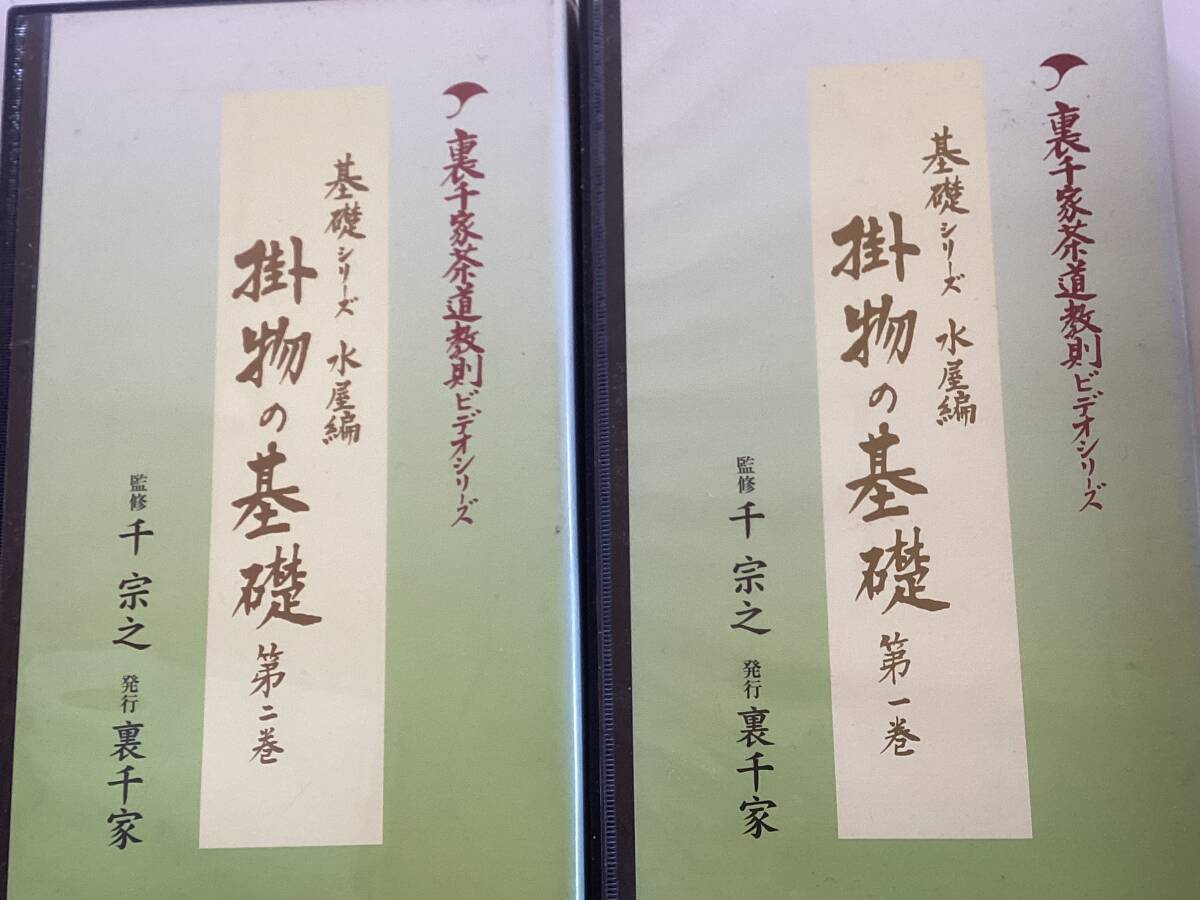 裏千家茶道教則ビデオシリーズ
基礎シリーズ 水屋編
掛物の基礎 第一巻
監修 千 宗之 発行 裏千家
裏千家茶道教則ビデオシリーズ
基礎シリーズ 水屋編
掛物の基礎 第二巻
監修 千 宗之 発行 裏千家